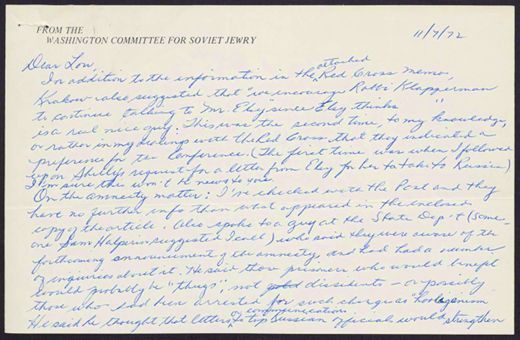 FROM THE
WASHINGTON COMMITTEE FOR SOVIET JEWRY
11/7/72
Dear Lou,
In addition to the information in the attached Red Cross memo,
Krakow also suggested that "we encourage Rabbi Klapperman
to continue talking to Mr. Eley" since Eley thinks
is a real nice guy. This was the second time to my knowledge,
or rather in my dealings with the Red Cross, that they indicated a
preference for the Conference. (The first time was when I followed
up on Shelly's request for a letter from Eley for her to take to Russia)
I'm sure this won't be news to you.
On the amnesty matter: I've checked with the Post and they
have no further info than what appeared in the enclosed
copy of the article. Also spoke to a guy at the State Dep't (Some-
one Sam Halperin suggested I call) who said they were aware of the
forthcoming announcement of the amnesty, and had had a number
of inquiries about it. He said those prisoners who would benefit
would probably be "thugs", not dissidents - or possibly
those who had been arrested for such charges as hooliganism
He said he thought that letters communications to top Russian officials would strengthen